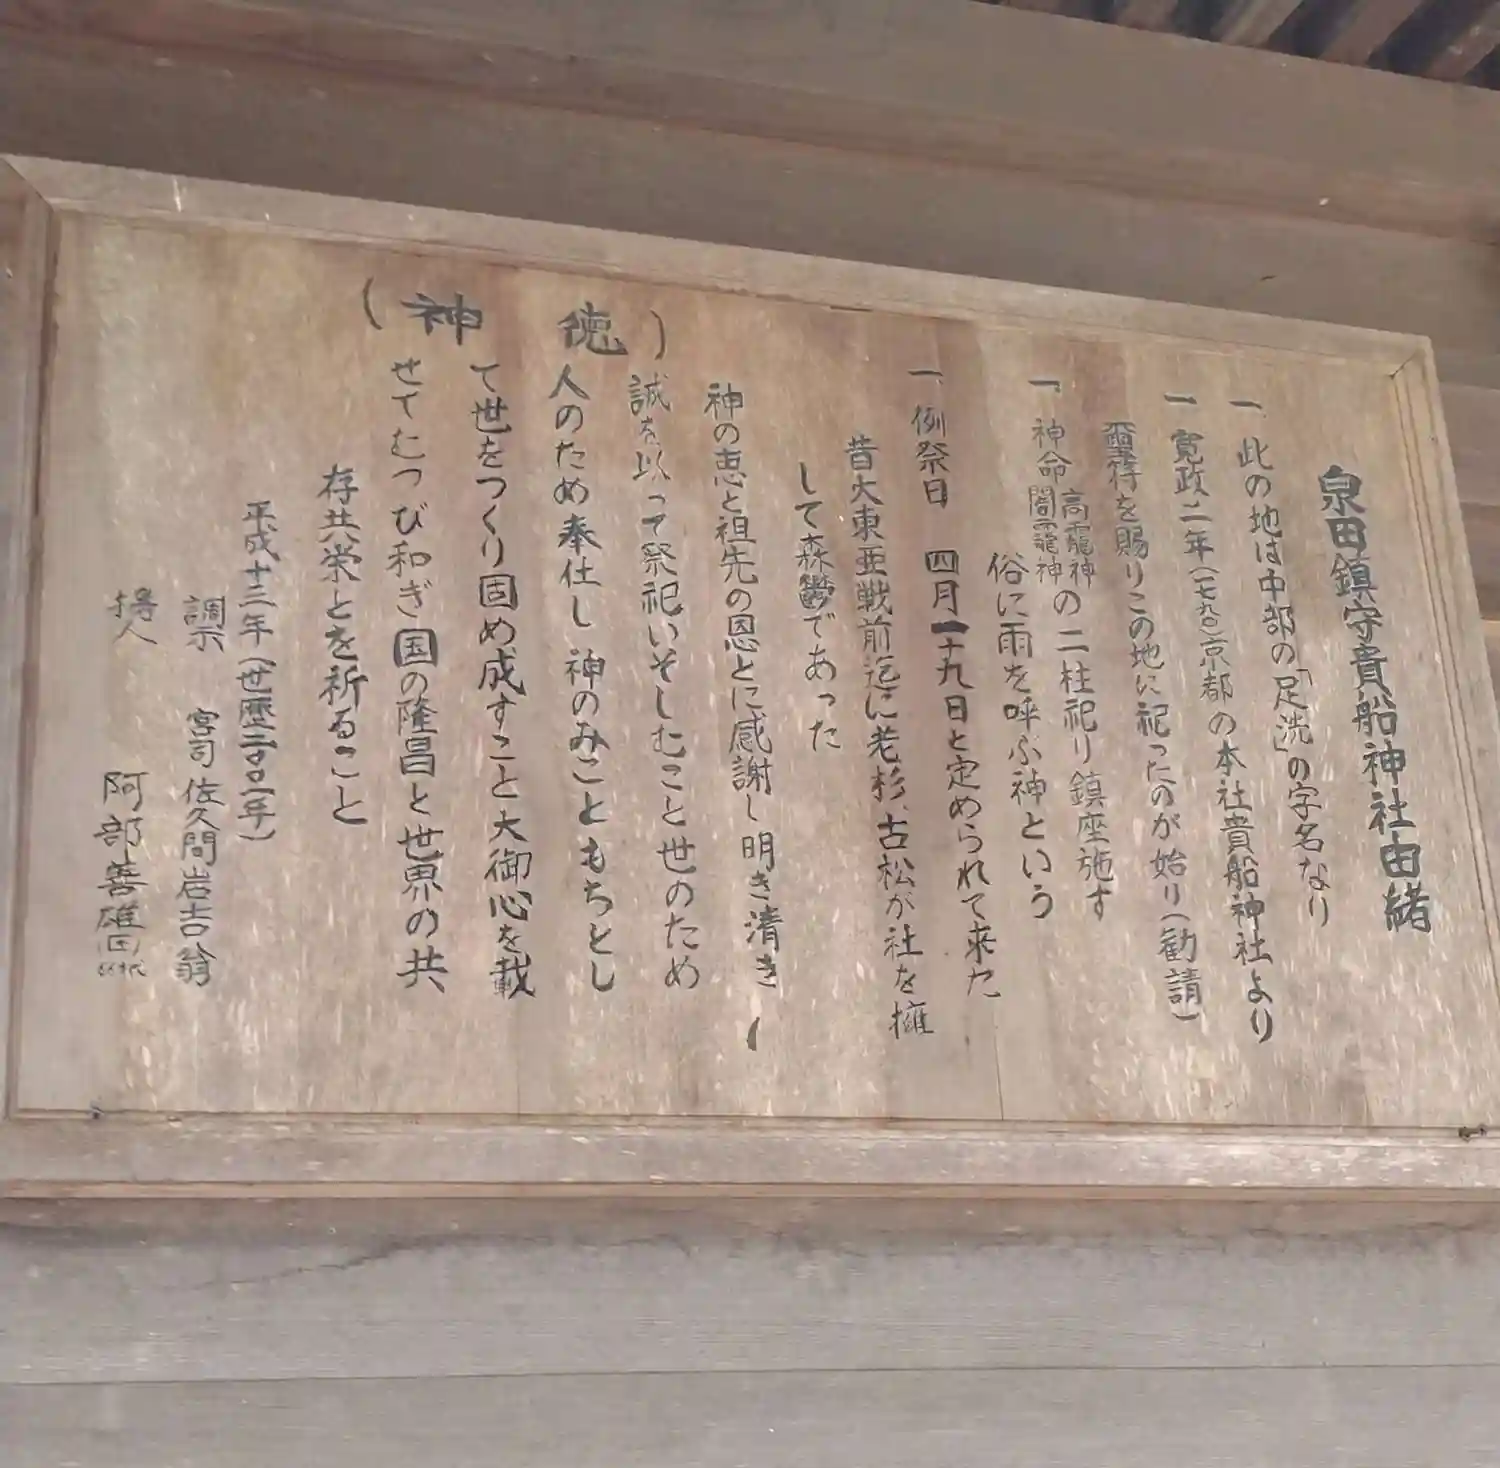 泉田鎮守貴船神社由緒
一、此の地は中部の「足洗」の字名なり
一、寛政二年(一七九〇)京都の本社貴船神社より
璽符を賜りこの地に祀ったのが始り(勧請)
一、神命 高龗神 闇龗神 の二柱祀り鎮座施す
俗に雨を呼ぶ神という
一、例祭日 四月二十九日と定められて来た
昔大東亜戦前迄に老杉、古松が社を擁
して森鬱であった
(神徳)
神の恵と祖先の恩とに感謝し明き清き
誠を以って祭祀いそしむこと世のため
人のため奉仕し神のみこともちとし
て世をつくり固め成すこと大御心を載
せてむつび和ぎ国の隆昌と世界の共
存共栄とを祈ること
平成十三年(世歴二〇〇一年)
調示 宮司 佐久間岩吉翁
揚人 阿部善雄